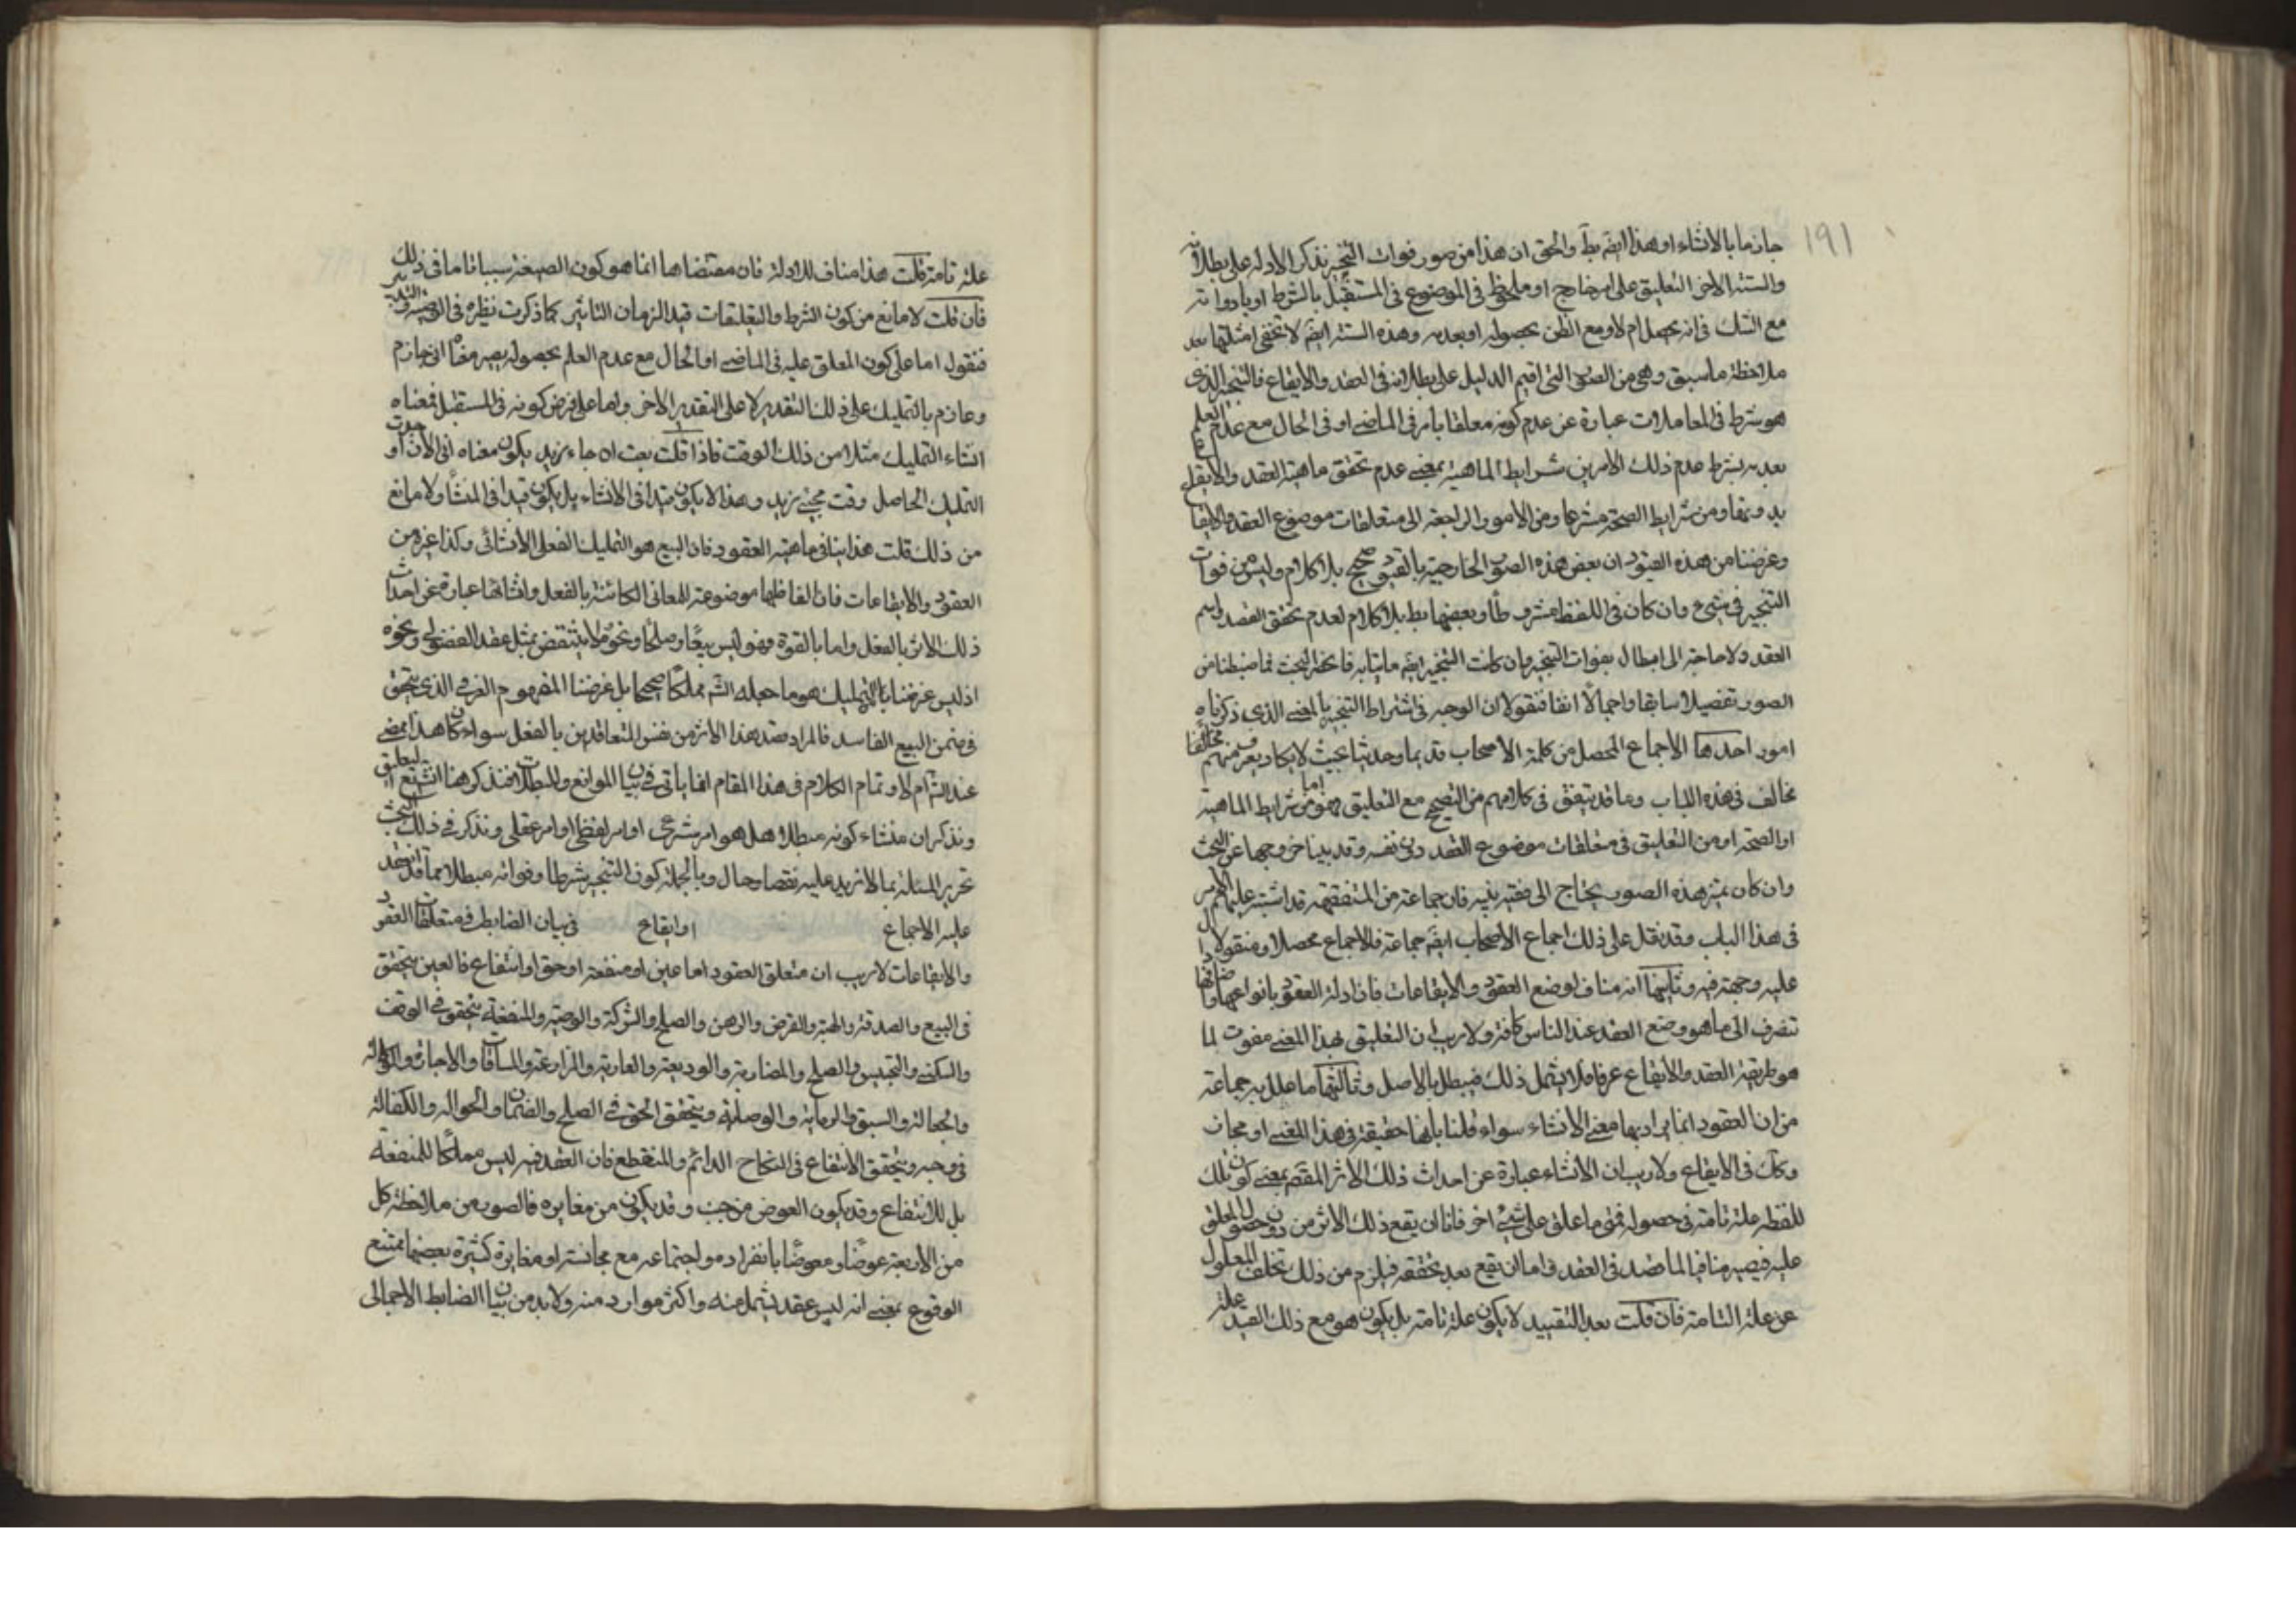 ١٩١
جازما بالانشاء او هذا ايضم بط والحق ان هذا من صور فوات التنجيز نذكر الادلة على بطلانه
والستة الاخر التعليق على امر خارج او ملحوظ في الموضوع في المستقبل بالشرط او بادواته
مع الشك في انه يحصل ام لا ومع الظن بحصوله او بعدمه وهذه الستة ايضم لا تخفى امثلتها بعد
ملاحظة ما سبق وهي من الصور التي اقيم الدليل على بطلانه في العقد والايقاع فالتنجيز الذي
هو شرط في المعاملات عبارة عن عدم كونه معلقا بامر في الماضي او في الحال مع عدم العلم
بعدمه بشرط عدم ذلك الامرين شرايط الماهية بمعنى عدم تحقق ماهية العقد والايقاع
بدونها ومن شرايط الصحة شرعا ومن الامور الراجعة الى متعلقات موضوع العقد والايقا
وغرضنا من هذه القيود ان بعض هذه الصور الخارجية بالقيود صحيح بلا كلام وليس من فوات
التنجيز في شيء وان كان في اللفظ مشروطا وبعضها بط بلا كلام لعدم تحقق القصد واسم
العقد ولا حاجة الى ابطال بفوات التنجيز وان كانت التنجيز ايضم ما يتابه فانحفر البحث فما ضبطنا من
الصور تفصيلا سابقا واجمالا انفا فنقول ان الوجه في شتراط التنجيز بالمعنى الذي ذكرناه
امور احدها الاجماع المحصل من كلمة الاصحاب قديما وحديثا بحيث لا يكاد يعرف منهم مخالفا
مخالف في هذه الباب وما قد يتفق في كلامهم من التصحيح مع التعليق فهو اما من شرايط الماهية
او الصحة او من التعليق في متعلقات موضوع العقد دون نفسه وقد بينا خروجها عن البحث
وان كان تميز هذه الصور يحتاج الى فقيه نبيه فان جماعة من المتفقهة قد اشتبه عليهم الامر
في هذا الباب وقد نقل على ذلك اجماع الاصحاب ايضم جماعة فالاجماع محصلا ومنقولا دال
عليه وحجة فيه وثانيها انه مناف لوضع العقود والايقاعات فان ادلة العقود بانواعها واصنافها
تنصرف الى ما هو وضع العقد عند الناس كافة ولا ريب ان التعليق بهذا المعنى مفوت لما
هو طريقة العقد والايقاع عرفا فلا يشمل ذلك فيبطل بالاصل وثالثها ما علل به جماعة
من ان العقود انما يراد بها معنى الانشاء سواء قلنا بانها حقيقة في هذا المعنى او مجاز
وكآ في الايقاع ولا ريب ان الانشاء عبارة عن احداث ذلك الاثر المقصم بمعنى كون تلك
اللفظة علة تامة في حصوله فمتى ما علق على شيء اخر فاما ان يقع ذلك الاثر من دون حصول المعلق
عليه فيصير منافيا لما قصد في العقد واما ان يقع بعد تحققه فيلزم من ذلك تخلف المعلول
عن علة التامة فان قلت بعد التقييد لا يكون علة تامة بل يكون هو مع ذلك القيد علة
علة تامة قلت هذا مناف للادلة فان مقتضاها انما هو كون الصيغة سببا تاما في ذلك
فان قلت لا مانع من كون الشرط والتعليقات قيد الزمان التاثير كما ذكرت نظيره في الوصية
فنقول اما على كون المعلق عليه في الماضي او الحال مع عدم العلم بحصوله يصير معناه اني جازم
وعازم بالتمليك على ذلك التقدير لا على التقدير الاخر واما على فرض كونه في المستقبل فمعناه
انشاء التمليك مثلا من ذلك الوقت فاذا قلت بعت ان جاء زيد يكون معناه اني الان اوجدت
التمليك الحاصل وقت مجئ زيد وهذا لا يكون قيدا في الانشاء بل يكون قيدا في المنشأ ولا مانع
من ذلك قلت هذا ينافي ماهية العقود فان البيع هو التمليك الفعلي الانشائي وكذا غيره من
العقود والايقاعات فان الفاظها موضوعة للمعاني الكائنة بالفعل وانشائها عبارة عن احداث
ذلك الاثر بالفعل واما بالقوة فهو ليس بيعا وصلحا ونحو ولا ينتقض بمثل عقد الفضولي ونحوه
اذ ليس غرضنا بالتمليك هو ما جعله الشم مملكا صحيحا بل غرضنا المفهوم العرفي الذي يتحقق
في ضمن البيع الفاسد فالمراد قصد هذا الاثر من نفس المتعاقدين بالفعل سواء كان هذا ممضى
عند الشم ام لا وتمام الكلام في هذا المقام انما ياتي في بيان الموانع والمبطلات فنذكر هنا التعليق
ونذكر ان منشاء كونه مبطلا هل هو امر شرعي او امر لفظي او امر عقلي ونذكر في ذلك البحث
تحرير المسئلة بما لا نزيد عليه نقصا وحال وبالجملة كون التنجيز شرطا وفواته مبطلا مما قد انعقد
عليه الاجماع او ايقاع في بيان الضابط في متعلقات العقود
والايقاعات لا ريب ان متعلق العقود اما عين او منفعة او حق او انتفاع فالعين يتحقق
في البيع والصدقة والهبة والقرض والرهن والصلح والشركة والوصية والمنفعة يتحقق في الوقف
والسكنى والتحبيس والصلح والمضاربة والوديعة والعارية والمزارعة والمساقات والاجارة والوكالة
والجعالة والسبق والرماية والوصاية ويتحقق الحق في الصلح والضمان والحوالة والكفالة
في وجه ويتحقق الانتفاع في النكاح الدائم والمنقطع فان العقد فيه ليس مملكا للمنفعة
بل للانتفاع وقد يكون العوض من جنب وقد يكون من مغايره فالصور من ملاحظة كل
من الاربعة عوضا ومعوضا بانفراد مو اجتماعه مع مجانسة او مغايرة كثيرة بعضها ممتنع
الوقوع بمعنى انه ليس عقد يشمل منه واكثر موارد منه ولا بد من بيان الضابط الاجمالي